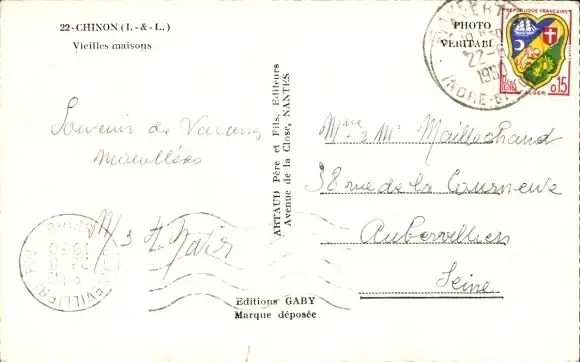 22-CHINON (I.-&-L.)
Vieilles maisons
PHOTO
VERITABL
REPUBLIQUE FRANÇAISE
ALGER
0,15
Souvenir de Vacances
ARTAUD Père et Fils, Editeurs
Avenue de la Close, NANTES
Mme & Mr Maillochaud
38 rue de la Courneuve
Aubervilliers
Seine
Editions GABY
Marque déposée